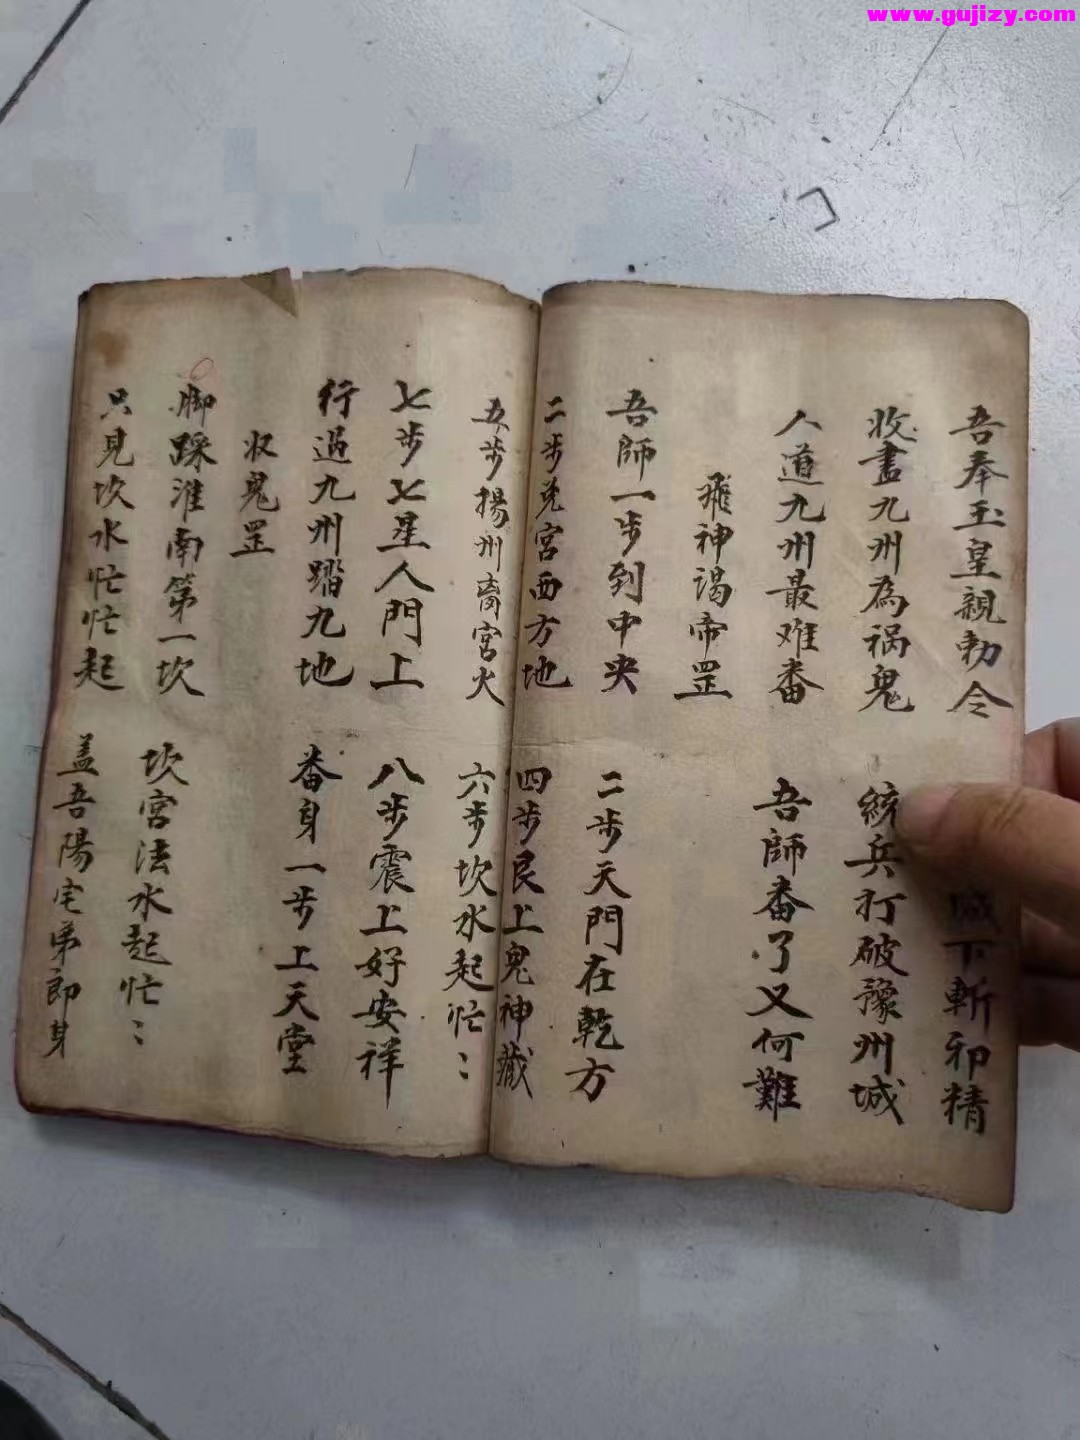 www.gujizy.com
吾奉玉皇親勅令 城下斬邪精
收盡九州為祸鬼 統兵打破豫州城
人道九州最难番 吾師番了又何難
飛神谒帝罡
吾師一步到中央 二步天門在乾方
二步兌宮西方地 四步艮上鬼神藏
五步揚州离宮火 六步坎水起忙〻
七步七星人門上 八步震上好安祥
行過九州踏九地 番身一步上天堂
収鬼罡
脚踩淮南第一坎 坎宮法水起忙〻
只見坎水忙忙起 盖吾陽宅弟郎身